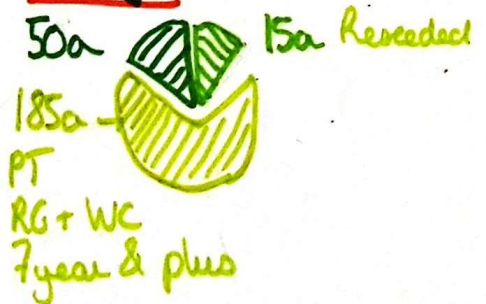 50a
15a Reseeded
185a
PT
RG + WC
7 year & plus